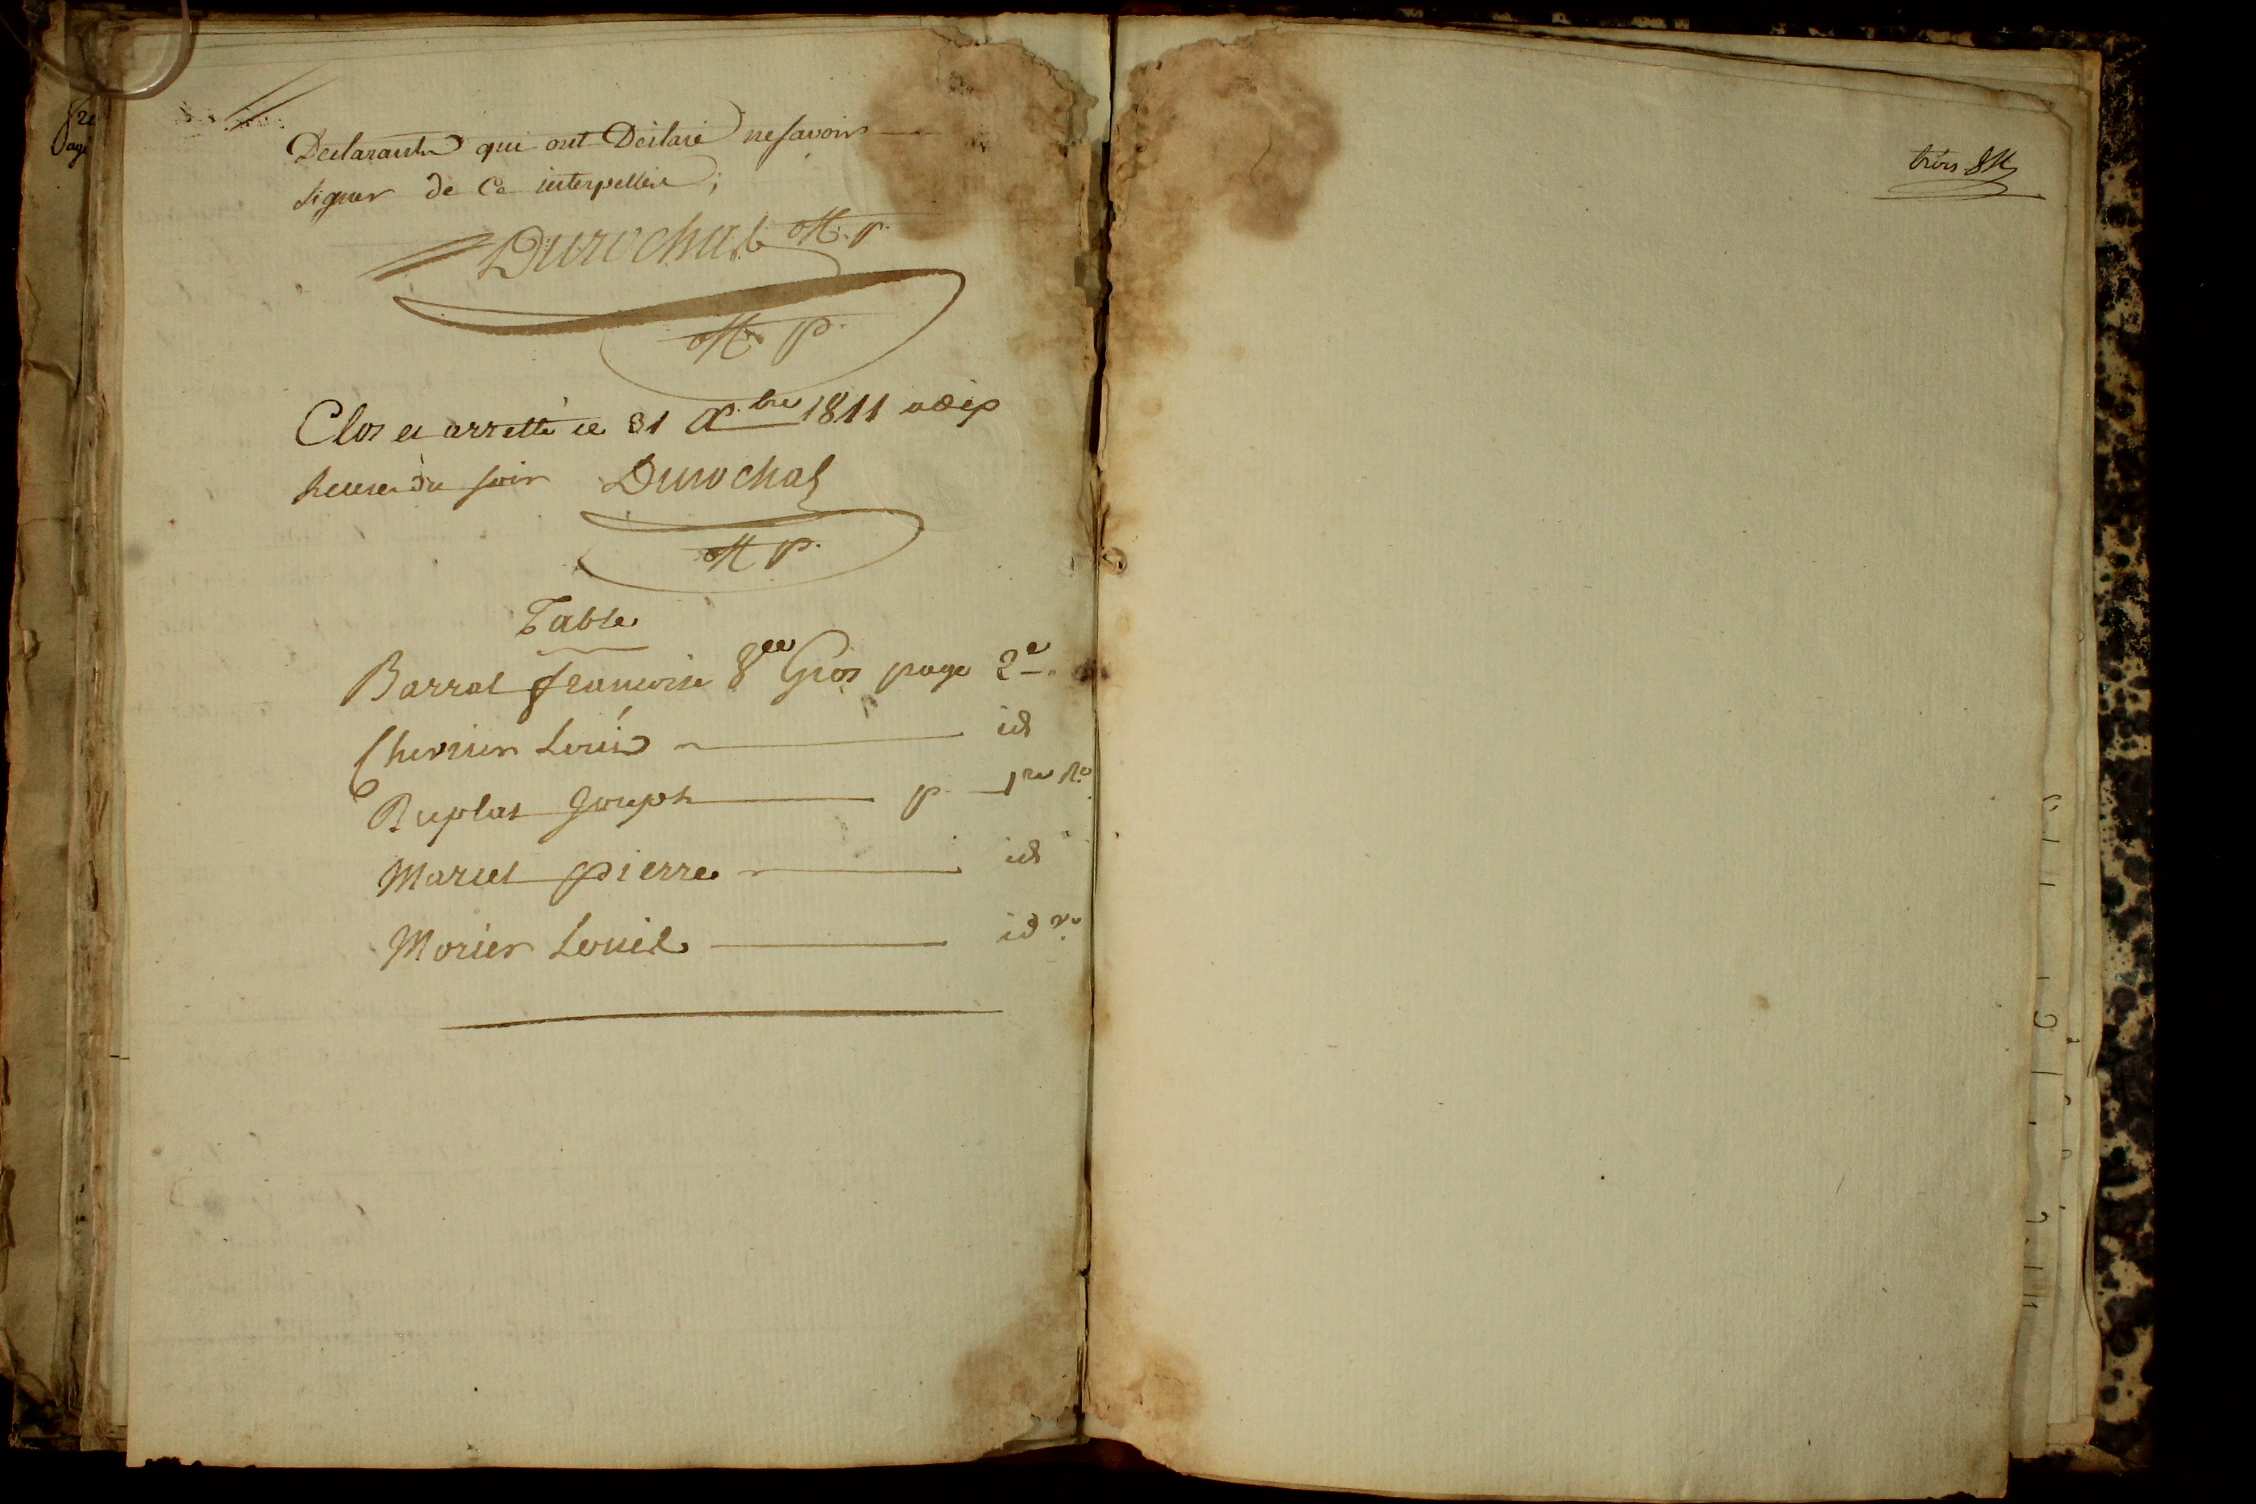 Declarants qui ont Declaré ne savoir
signer de Ce interpellés ;
Durochat M. p.
M. p.
Clos et arretté ce 31 Xbre 1811 a dix
heures du soir Durochat
M p.
Table
Barrat francoise vve Gros page 2e
Chevrier Louis id
Duplat Joseph p 1re Ro
Marcel pierre id
Morier Louis id vo
trois